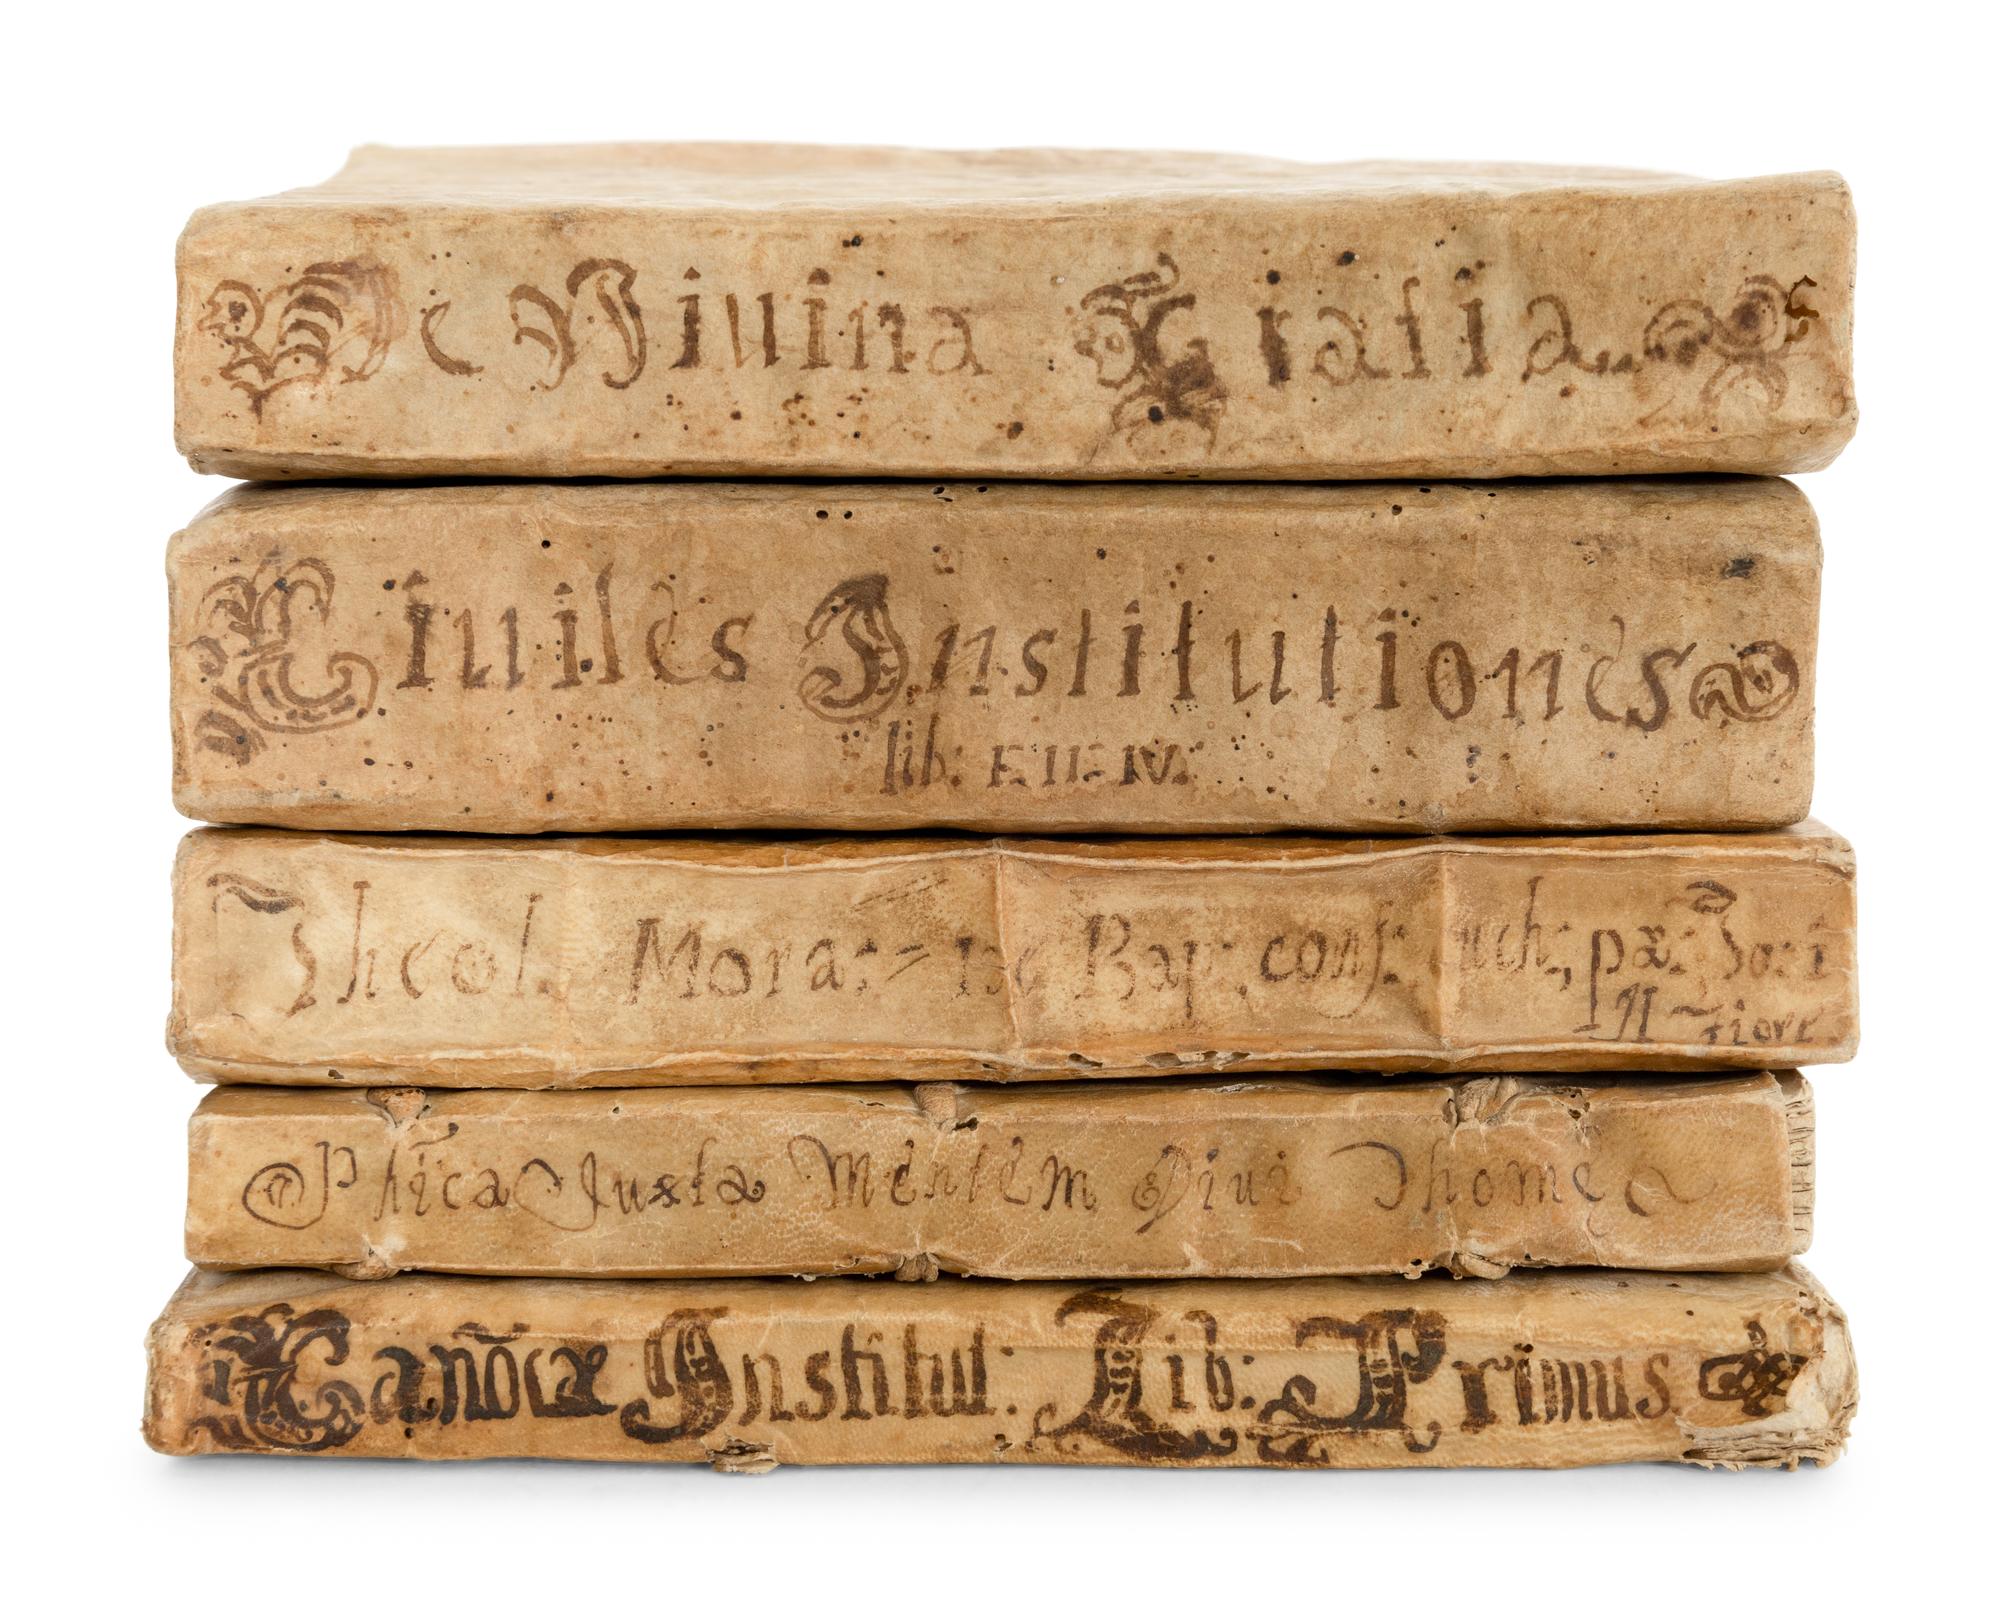 De Diuina Gratia
Ciuiles Institutiones
lib: I. II. IV.
Theol. Mora: = De Bap: conf: uch:, pæ:
Phica Juxta Mentem Diui Thome
Canõcæ Institut: Lib: Primus